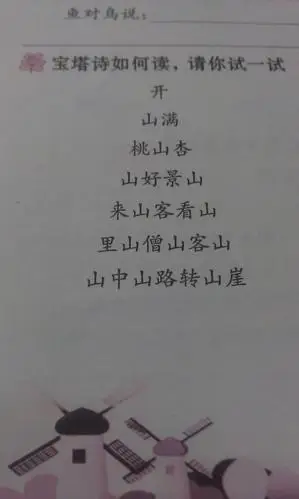 鱼对鸟说：
宝塔诗如何读，请你试一试
开
山满
桃山杏
山好景山
来山客看山
里山僧山客山
山中山路转山崖